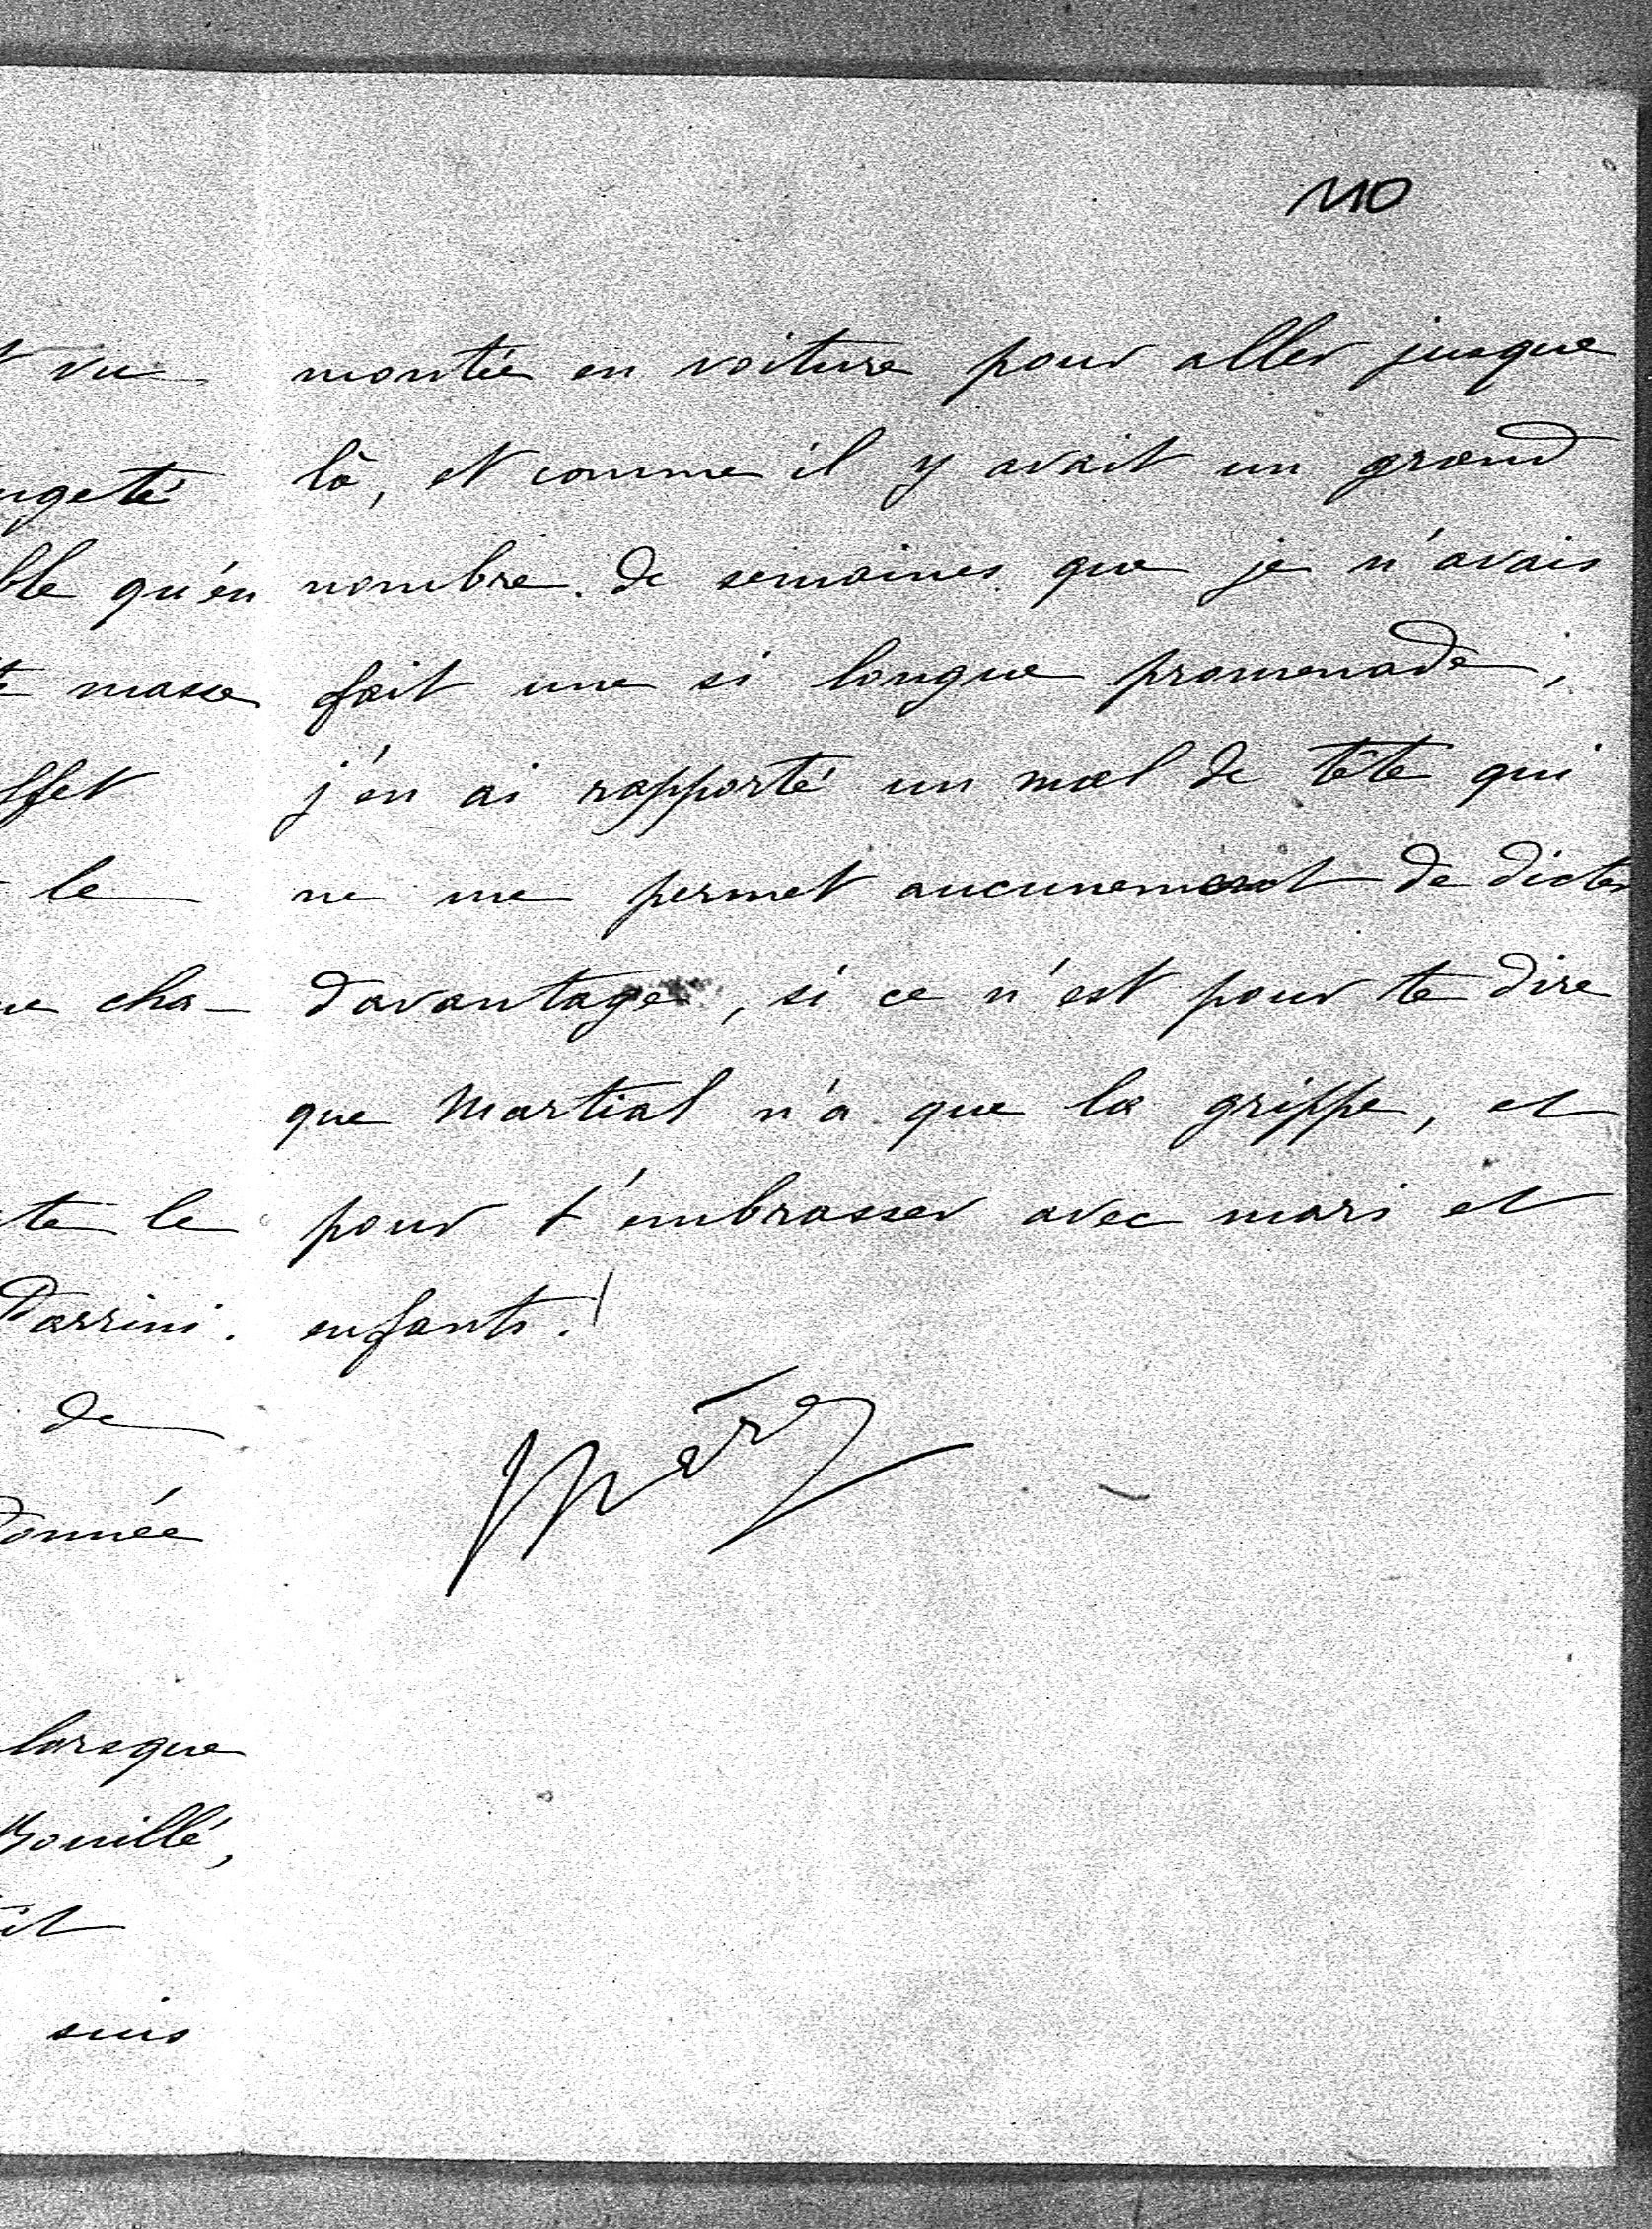 110
vu
ngeté
ble qu'en
masse
ffet
le
ue cha-
te le
Parrini.
de
donnée
lorsque
Bouillé,
it
suis
montée en voiture pour aller jusque
là, et comme il y avait un grand
nombre de semaines que je n'avais
fait une si longue promenade,
j'en ai rapporté un mal de tête qui
ne me permet aucunement de dicter
davantage, si ce n'est pour te dire
que Martial n'a que la grippe, et
pour t'embrasser avec mari et
enfants.!
Mère